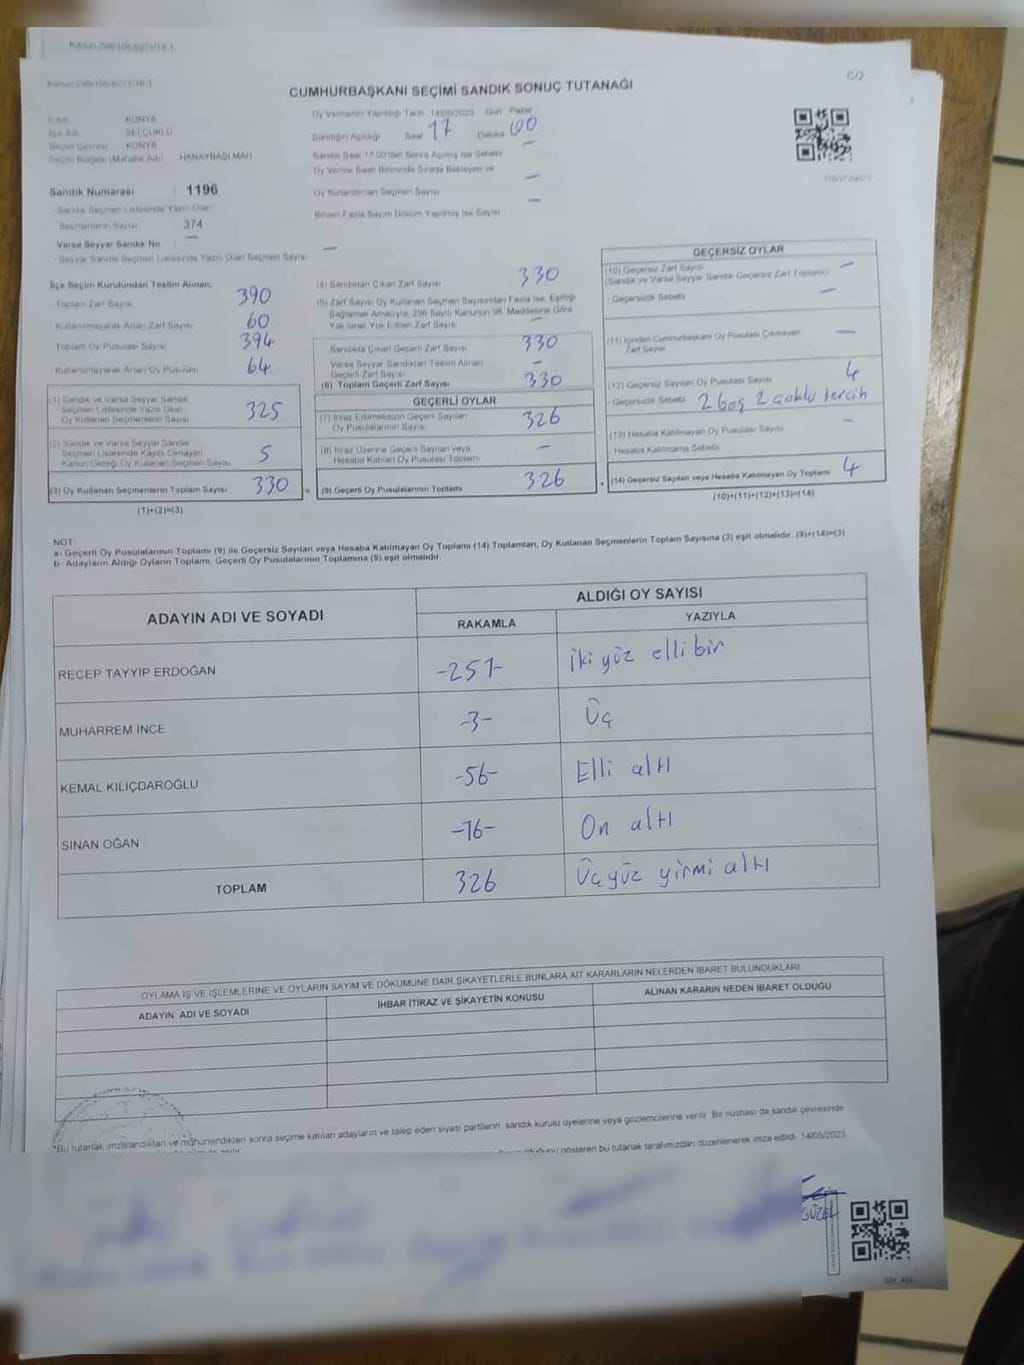 C/2
CUMHURBAŞKANI SEÇİMİ SANDIK SONUÇ TUTANAĞI
KONYA
SELÇUKLU
KONYA
HANAYBAŞI MAH
Sandık Numarası : 1196
Sandık Seçmen Listesinde Yazılı Olan
Seçmenlerin Sayısı 374
Varsa Seyyar Sandık No —
Seyyar Sandık Seçmen Listesinde Yazılı Olan Seçmen Sayısı —
Oy Vermenin Yapıldığı Tarih 14/05/2023 Gün Pazar
Sandığın Açıldığı Saat 17 Dakika 00
Sandık Saat 17.00'dan Sonra Açılmış İse Sebebi —
Oy Verme Saati Bitiminde Sırada Bekleyen ve
Oy Kullandırılan Seçmen Sayısı —
Birden Fazla Sayım Döküm Yapılmış İse Sayısı —
İlçe Seçim Kurulundan Teslim Alınan;
Toplam Zarf Sayısı 390
Kullanılmayarak Artan Zarf Sayısı 60
Toplam Oy Pusulası Sayısı 394
Kullanılmayarak Artan Oy Pusulası 64
(1) Sandık ve Varsa Seyyar Sandık
Seçmen Listesinde Yazılı Olup
Oy Kullanan Seçmenlerin Sayısı 325
(2) Sandık ve Varsa Seyyar Sandık
Seçmen Listesinde Kayıtlı Olmayan
Kanun Gereği Oy Kullanan Seçmen Sayısı 5
(3) Oy Kullanan Seçmenlerin Toplam Sayısı 330
(1)+(2)=(3)
(4) Sandıktan Çıkan Zarf Sayısı 330
(5) Zarf Sayısı Oy Kullanan Seçmen Sayısından Fazla İse, Eşitliği
Sağlamak Amacıyla, 298 Sayılı Kanunun 98. Maddesine Göre
Yakılarak Yok Edilen Zarf Sayısı —
Sandıkta Çıkan Geçerli Zarf Sayısı 330
Varsa Seyyar Sandıktan Teslim Alınan
Geçerli Zarf Sayısı —
(6) Toplam Geçerli Zarf Sayısı 330
GEÇERLİ OYLAR
(7) İtiraz Edilmeksizin Geçerli Sayılan
Oy Pusulalarının Sayısı 326
(8) İtiraz Üzerine Geçerli Sayılan veya
Hesaba Katılan Oy Pusulası Toplamı —
(9) Geçerli Oy Pusulalarının Toplamı 326
GEÇERSİZ OYLAR
(10) Geçersiz Zarf Sayısı —
(Sandık ve Varsa Seyyar Sandık Geçersiz Zarf Toplamı)
Geçersizlik Sebebi —
(11) İçinden Cumhurbaşkanı Oy Pusulası Çıkmayan
Zarf Sayısı —
(12) Geçersiz Sayılan Oy Pusulası Sayısı 4
Geçersizlik Sebebi 2 boş 2 çoklu tercih
(13) Hesaba Katılmayan Oy Pusulası Sayısı —
Hesaba Katılmama Sebebi
(14) Geçersiz Sayılan veya Hesaba Katılmayan Oy Toplamı 4
(10)+(11)+(12)+(13)=(14)
NOT:
a- Geçerli Oy Pusulalarının Toplamı (9) ile Geçersiz Sayılan veya Hesaba Katılmayan Oy Toplamı (14) Toplamları, Oy Kullanan Seçmenlerin Toplam Sayısına (3) eşit olmalıdır. (9)+(14)=(3)
b- Adayların Aldığı Oyların Toplamı, Geçerli Oy Pusulalarının Toplamına (9) eşit olmalıdır.
ADAYIN ADI VE SOYADI
ALDIĞI OY SAYISI
RAKAMLA YAZIYLA
RECEP TAYYİP ERDOĞAN -251- İki yüz elli bir
MUHARREM İNCE -3- Üç
KEMAL KILIÇDAROĞLU -56- Elli altı
SİNAN OĞAN -16- On altı
TOPLAM 326 Üçyüz yirmi altı
OYLAMA İŞ VE İŞLEMLERİNE VE OYLARIN SAYIM VE DÖKÜMÜNE DAİR ŞİKAYETLERLE BUNLARA AİT KARARLARIN NELERDEN İBARET BULUNDUKLARI
ADAYIN ADI VE SOYADI İHBAR İTİRAZ VE ŞİKAYETİN KONUSU ALINAN KARARIN NEDEN İBARET OLDUĞU
*Bu tutanak imzalandıktan ve mühürlendikten sonra seçime katılan adayların ve talep eden siyasi partilerin, sandık kurulu üyelerine veya gözlemcilerine verilir. Bir nüshası da sandık çevresinde
gösteren bu tutanak tarafımızdan düzenlenerek imza edildi. 14/05/2023
GÜZEL